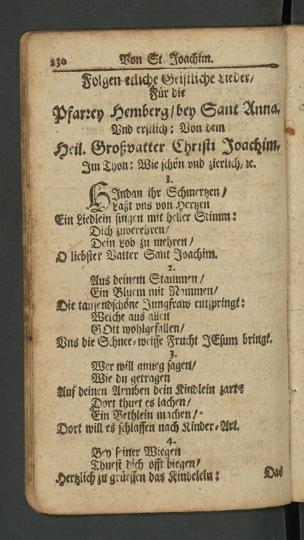 230 Von St Joachim.
Folgen etliche Geistliche Lieder/
Für die
Pfarrey Hemberg/bey Sant Anna.
Und erstlich: Von dem
Heil. Großvatter Christi Joachim.
Im Thon: Wie schön und zierlich, ꝛc.
1.
Hindan ihr Schmertzen/
Laßt uns von Hertzen
Ein Liedlein singen mit heller Stimm:
Dich zuverehren/
Dein Lob zu mehren/
O liebster Vatter Sant Joachim.
2.
Aus deinem Stammen/
Ein Bluem mit Nammen/
Die tausendschöne Jungfraw entspringt:
Welche aus allen
GOtt wohlgefallen/
Uns die Schnee-weisse Frucht JEsum bringt.
3.
Wer will anueg sagen/
Wie du getragen
Auf deinen Armben dein Kindlein zart?
Dort thuet es lachen/
Ein Bethlein machen/
Dort will es schlaffen nach Kinder-Art.
4.
Bey seiner Wiegen
Thuest dich offt biegen/
Hertzlich zu grüessen das Kindelein:
Das